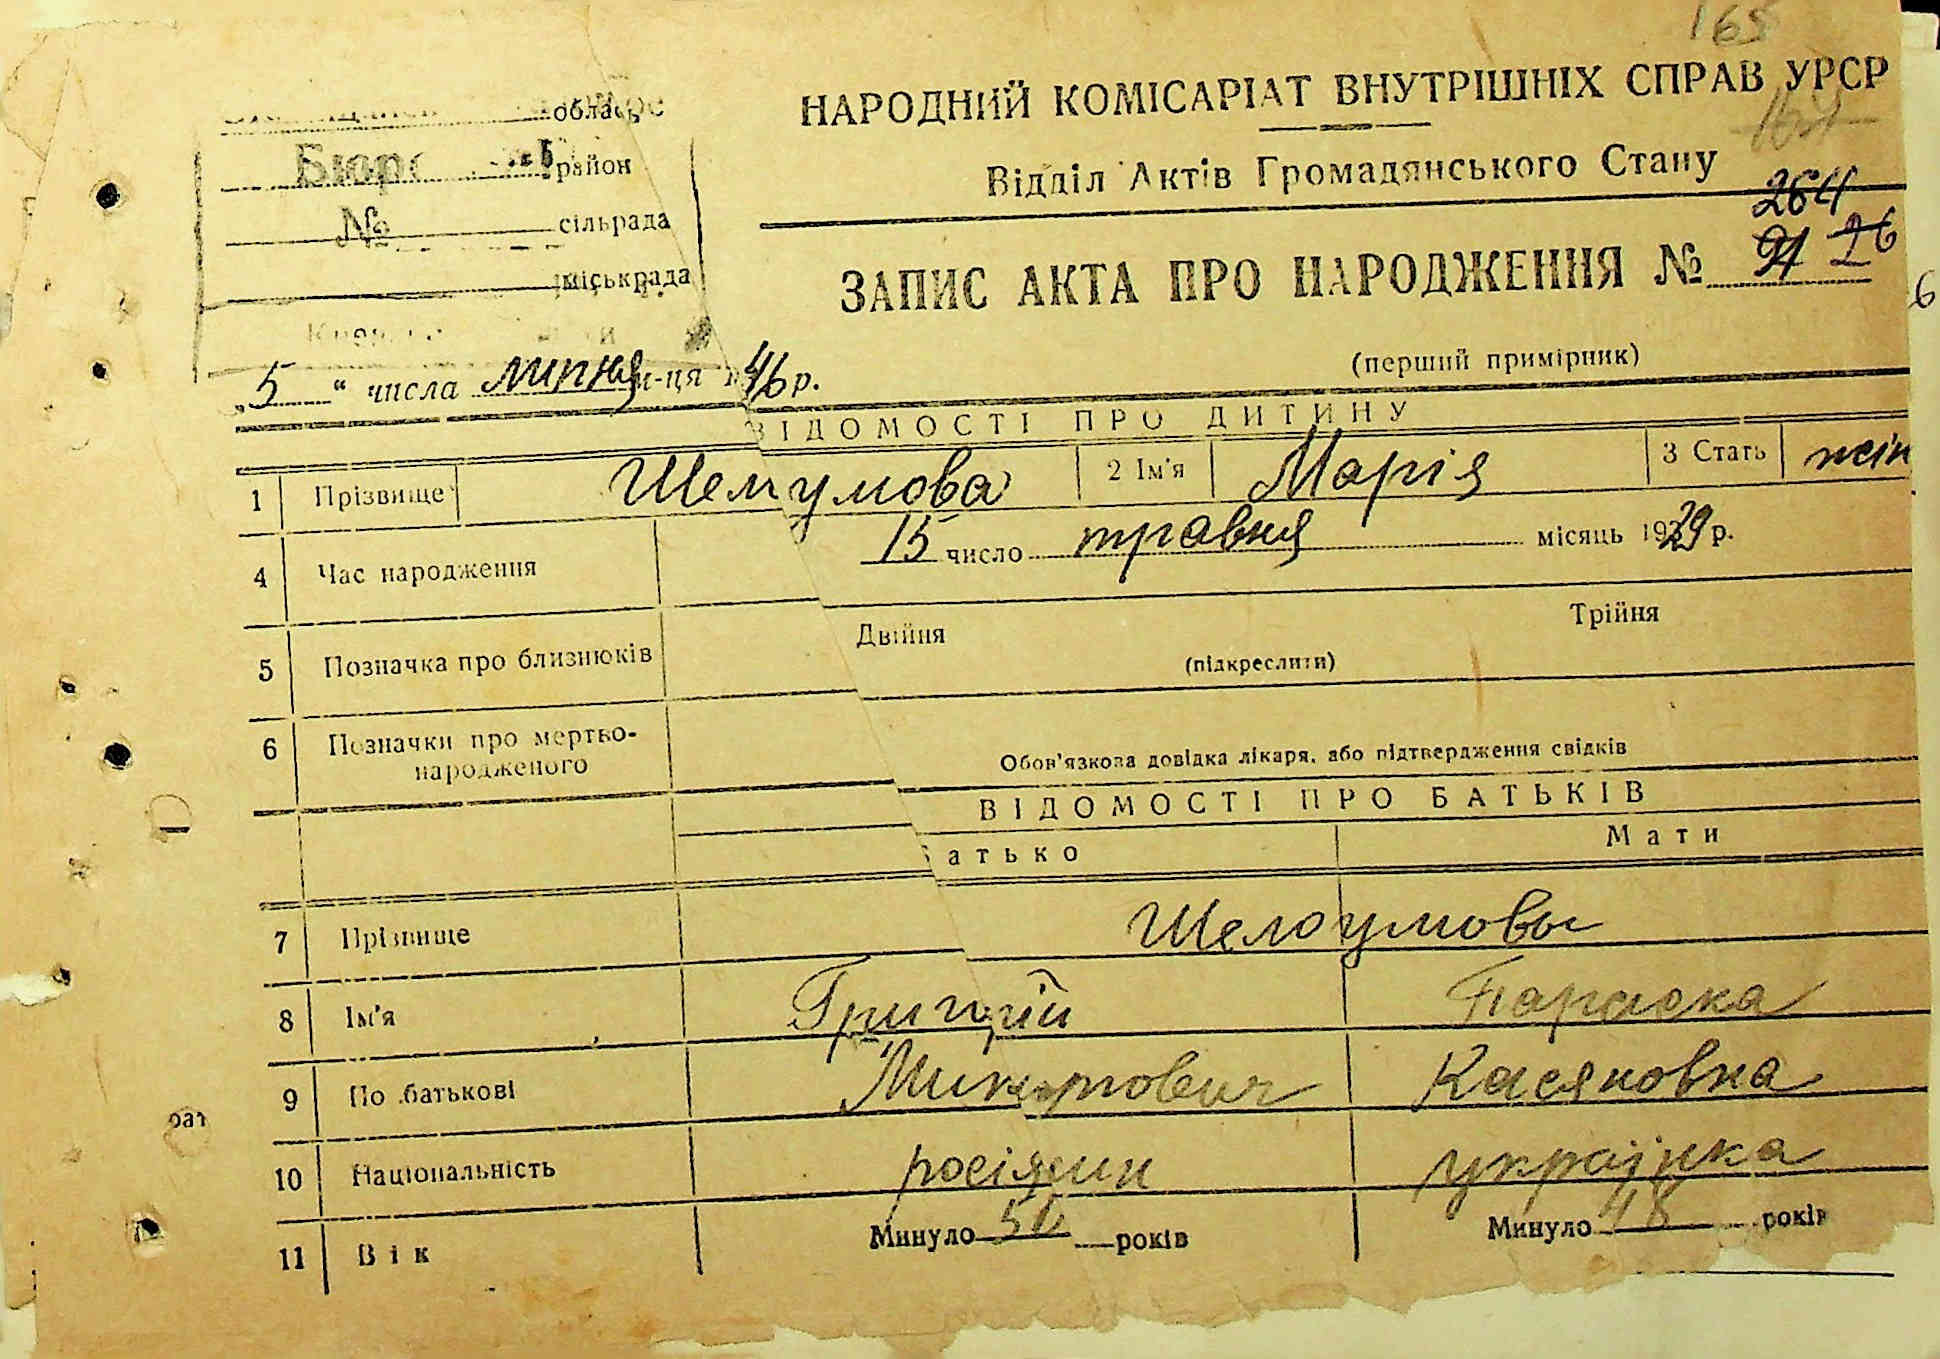 165
НАРОДНИЙ КОМІСАРІАТ ВНУТРІШНІХ СПРАВ УРСР
164
Відділ Актів Громадянського Стану
область
Бюро район
№ сільрада
міськрада
264
ЗАПИС АКТА ПРО НАРОДЖЕННЯ № 91 26
(перший примірник)
„5“ числа липня м-ця 1946 р.
ВІДОМОСТІ ПРО ДИТИНУ
1 Прізвище Шелоумова 2 Ім'я Марія 3 Стать жін
4 Час народження 15 число травня місяць 1929 р.
5 Позначка про близнюків Двійня Трійня
(підкреслити)
6 Позначки про мертво-
народженого
Обов'язкова довідка лікаря, або підтвердження свідків
ВІДОМОСТІ ПРО БАТЬКІВ
Батько Мати
7 Прізвище Шелоумовы
8 Ім'я Григорій Параска
9 По батькові Касяновна
10 Національність росіянин українка
11 Вік Минуло років Минуло 48 років